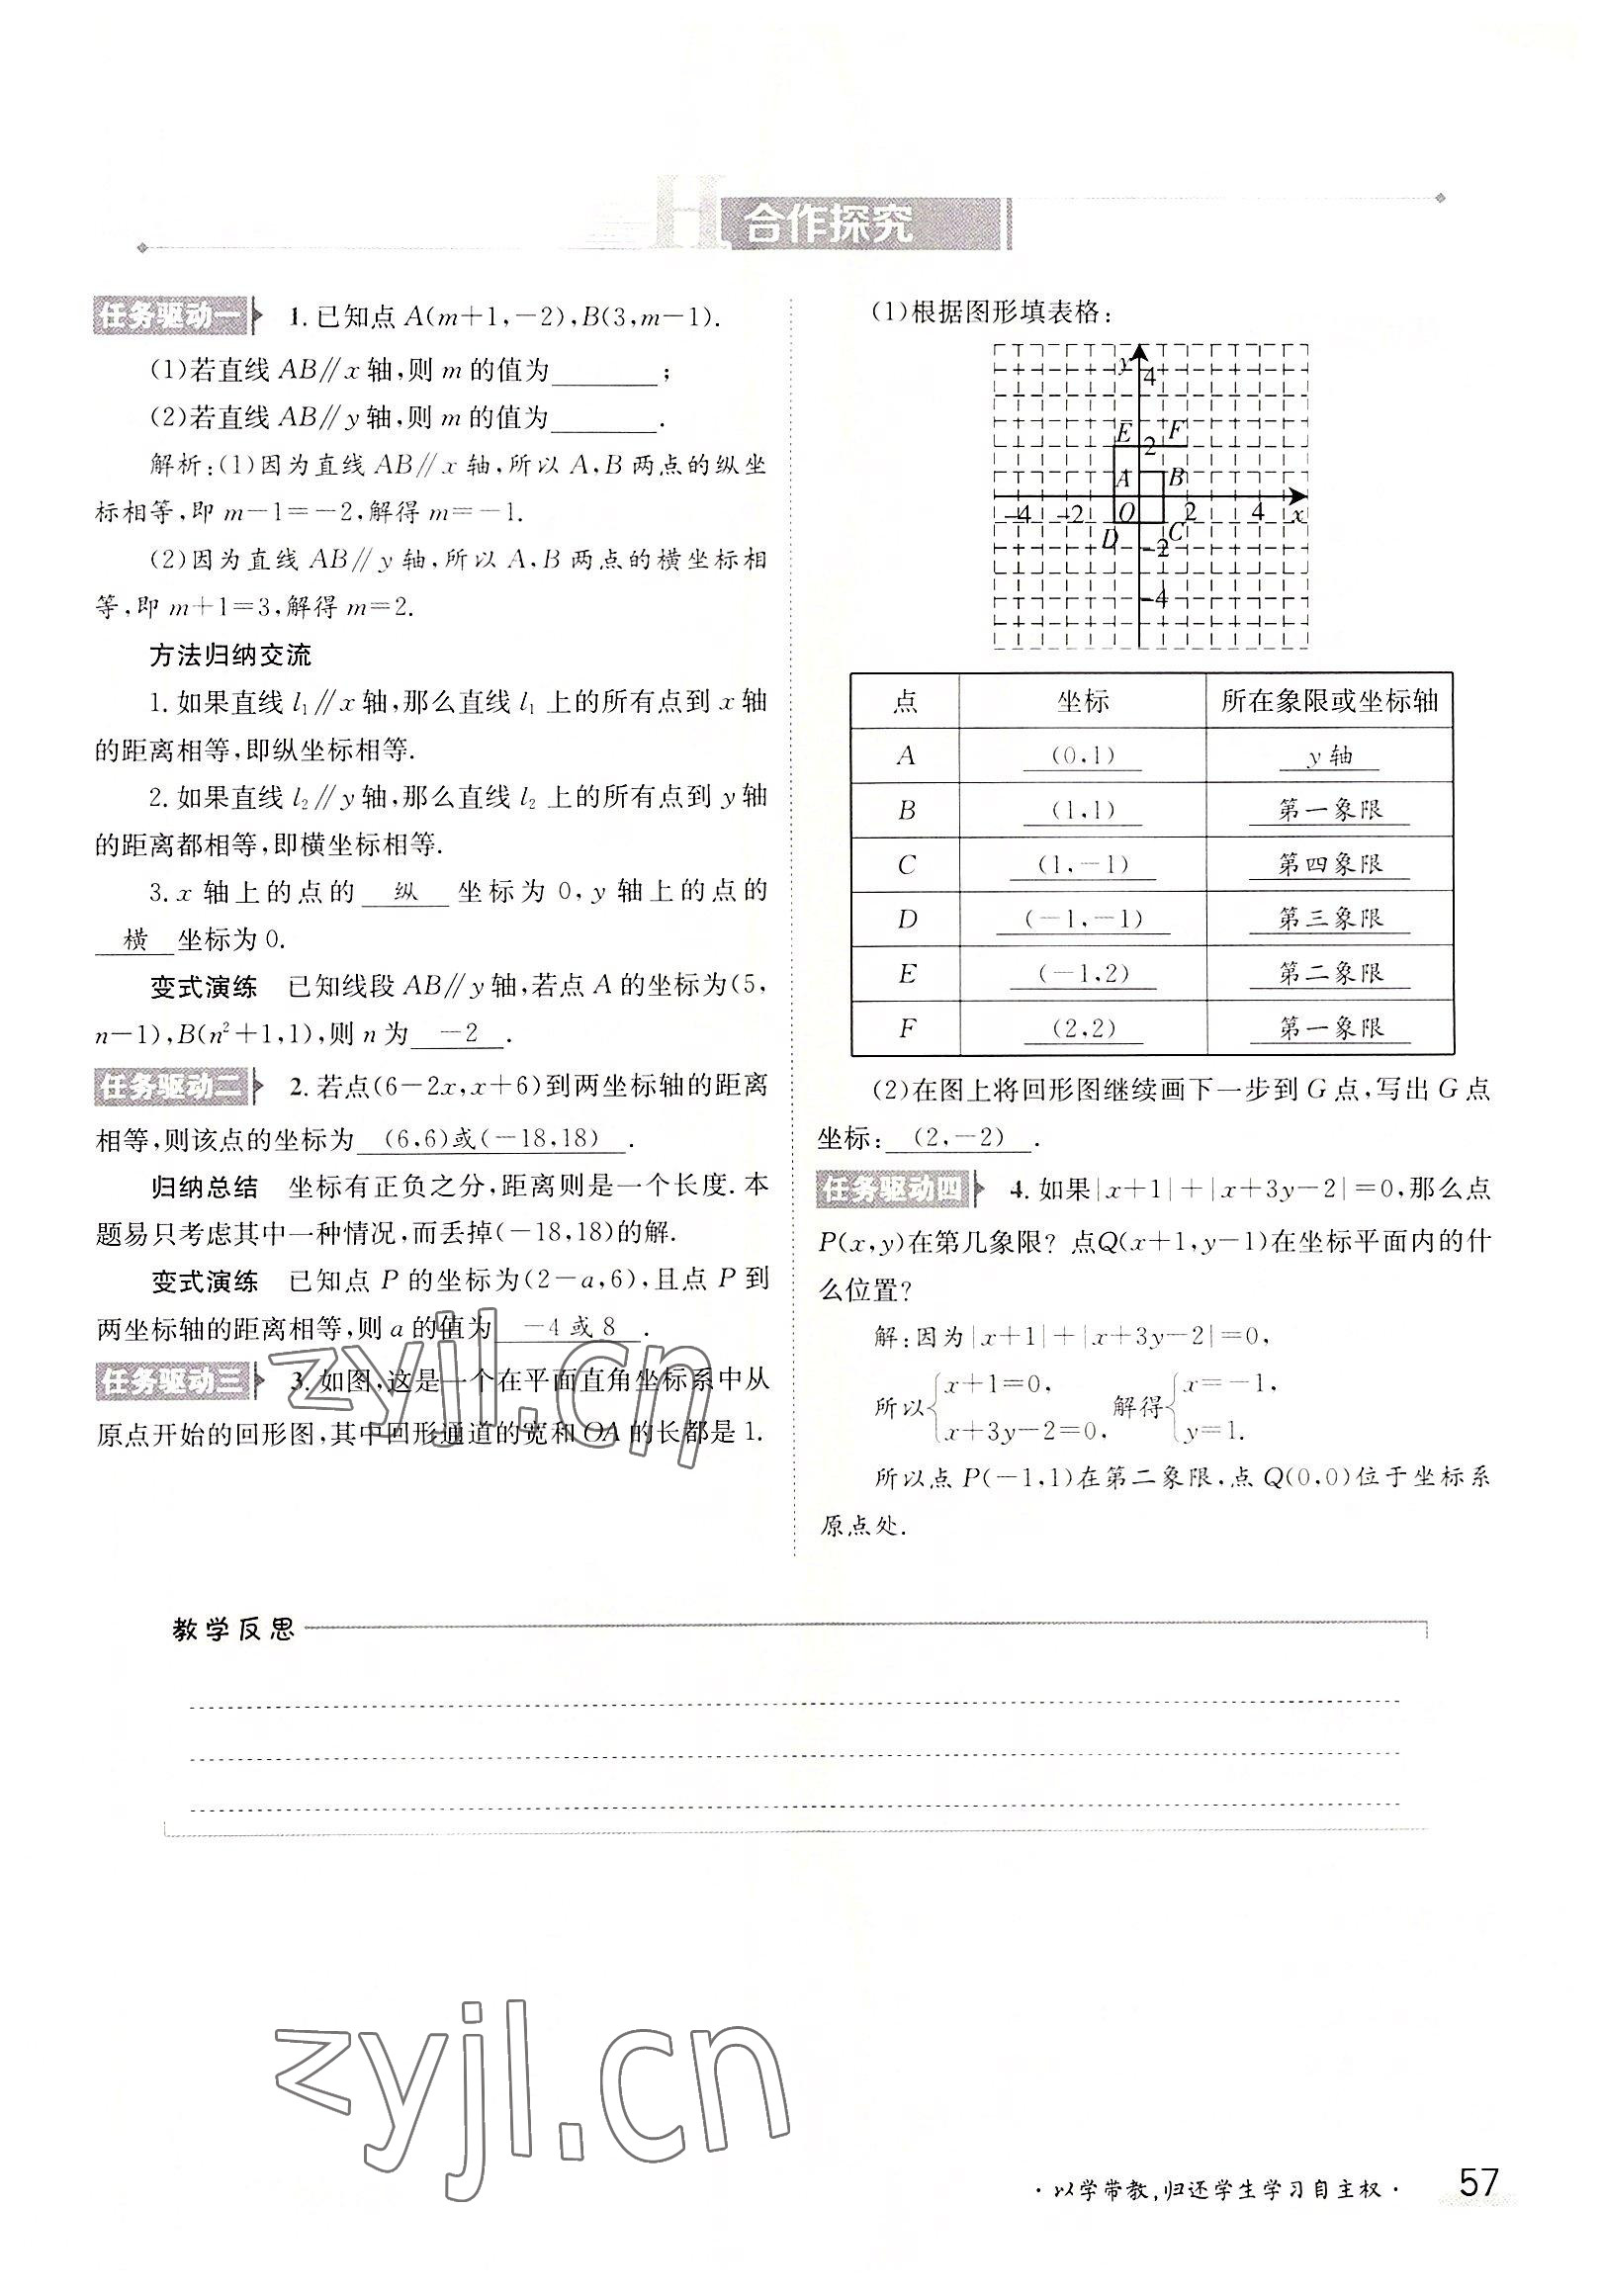 合作探究
任务驱动一 1.已知点 A(m+1,-2),B(3,m-1).
(1)若直线 AB∥x 轴,则 m 的值为________;
(2)若直线 AB∥y 轴,则 m 的值为________.
解析:(1)因为直线 AB∥x 轴,所以 A,B 两点的纵坐
标相等,即 m-1=-2,解得 m=-1.
(2)因为直线 AB∥y 轴,所以 A,B 两点的横坐标相
等,即 m+1=3,解得 m=2.
方法归纳交流
1.如果直线 l₁∥x 轴,那么直线 l₁ 上的所有点到 x 轴
的距离相等,即纵坐标相等.
2.如果直线 l₂∥y 轴,那么直线 l₂ 上的所有点到 y 轴
的距离都相等,即横坐标相等.
3.x 轴上的点的 纵 坐标为 0,y 轴上的点的
横 坐标为 0.
变式演练 已知线段 AB∥y 轴,若点 A 的坐标为(5,
n-1),B(n²+1,1),则 n 为 -2 .
任务驱动二 2.若点(6-2x,x+6)到两坐标轴的距离
相等,则该点的坐标为 (6,6)或(-18,18) .
归纳总结 坐标有正负之分,距离则是一个长度.本
题易只考虑其中一种情况,而丢掉(-18,18)的解.
变式演练 已知点 P 的坐标为(2-a,6),且点 P 到
两坐标轴的距离相等,则 a 的值为 -4 或 8 .
任务驱动三 3.如图,这是一个在平面直角坐标系中从
原点开始的回形图,其中回形通道的宽和 OA 的长都是 1.
(1)根据图形填表格:
y
4
E 2 F
A B
-4 -2 O 2 4 x
D C
-2
-4
点 坐标 所在象限或坐标轴
A (0,1) y 轴
B (1,1) 第一象限
C (1,-1) 第四象限
D (-1,-1) 第三象限
E (-1,2) 第二象限
F (2,2) 第一象限
(2)在图上将回形图继续画下一步到 G 点,写出 G 点
坐标: (2,-2) .
任务驱动四 4.如果|x+1|+|x+3y-2|=0,那么点
P(x,y)在第几象限? 点Q(x+1,y-1)在坐标平面内的什
么位置?
解:因为|x+1|+|x+3y-2|=0,
所以{x+1=0, x+3y-2=0, 解得{x=-1, y=1.
所以点 P(-1,1)在第二象限,点 Q(0,0)位于坐标系
原点处.
教学反思
zyjl.cn
zyjl.cn
·以学带教,归还学生学习自主权· 57